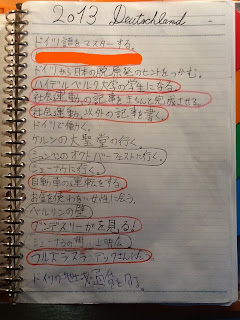 2013 Deutschland
ドイツ語をマスターする。
ドイツから日本の脱原発のヒントをつかむ。
ハイデルベルク大学の学生になる
社会運動の記事をきちんと完成させる
社会運動以外の記事を書く
ドイツで働く。
ケルンの大聖堂の行く。
ミュンヘンのオクトバーフェストに行く。
ミュージアムに行く。
自動車の運転をする
お金を使わない女性に会う。
ベルリンの壁
ブンデスリーガを見る!
ミュージアムの 上映会
ドイツの